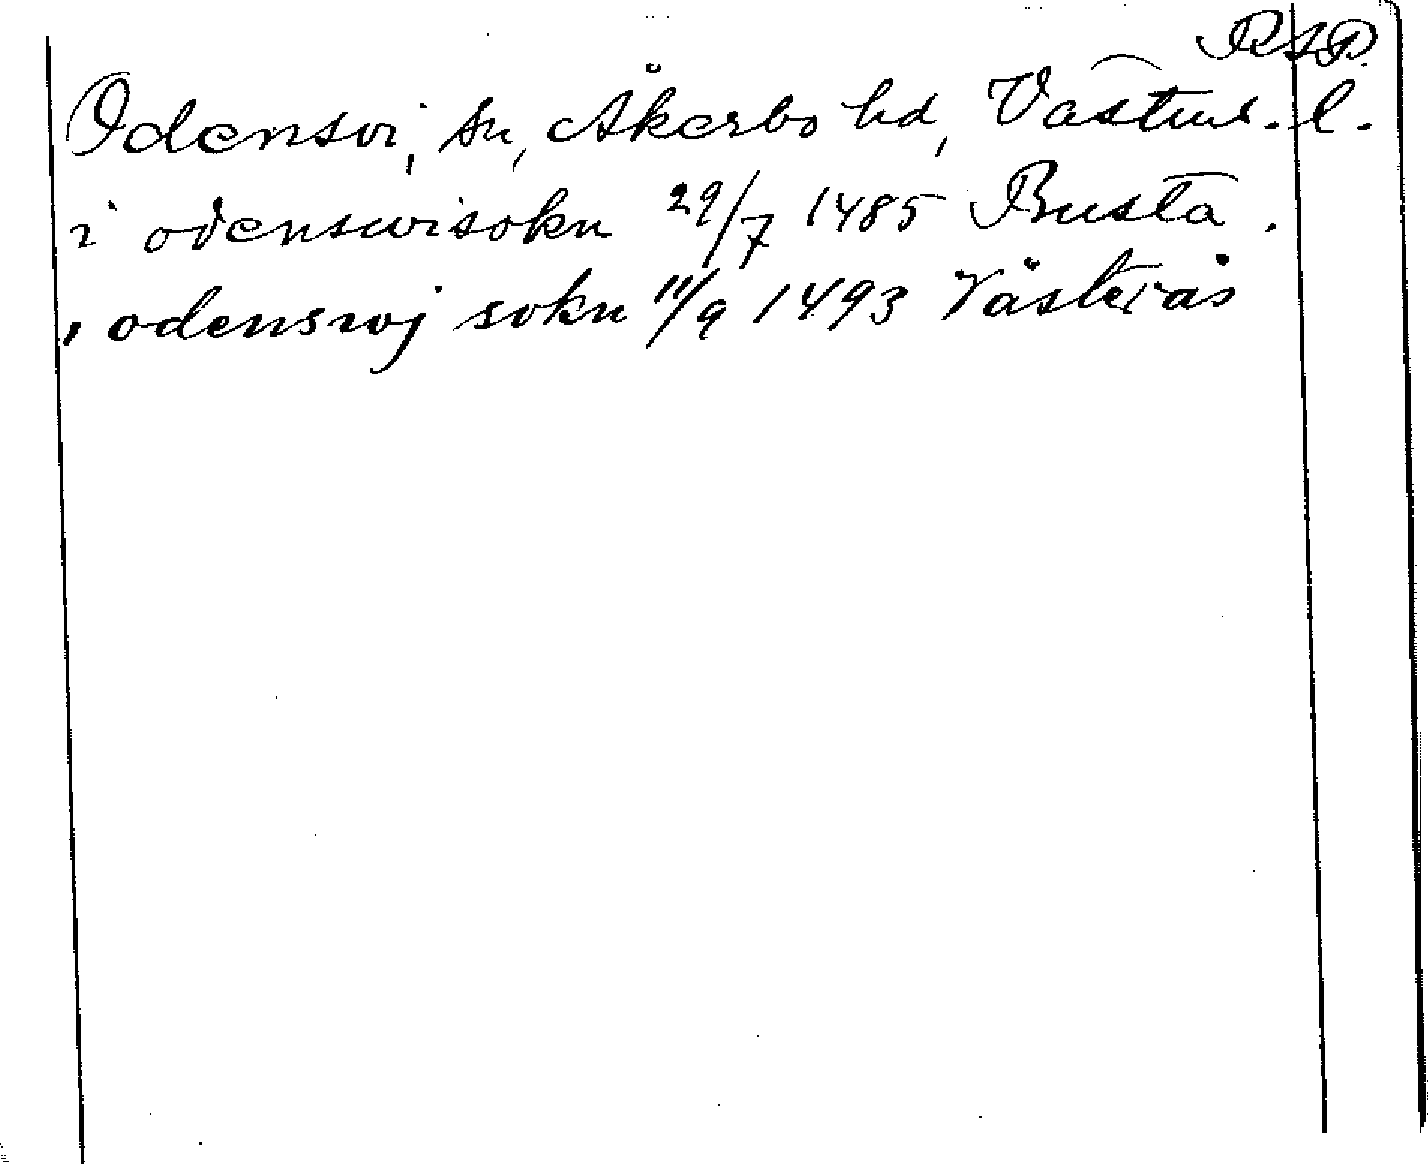 RAP.
Odensvi, sn, Åkerbo hd, Västml. l.
i odenswisokn 29/7 1485 Busta.
, odenswj sokn 11/9 1493 Västerås